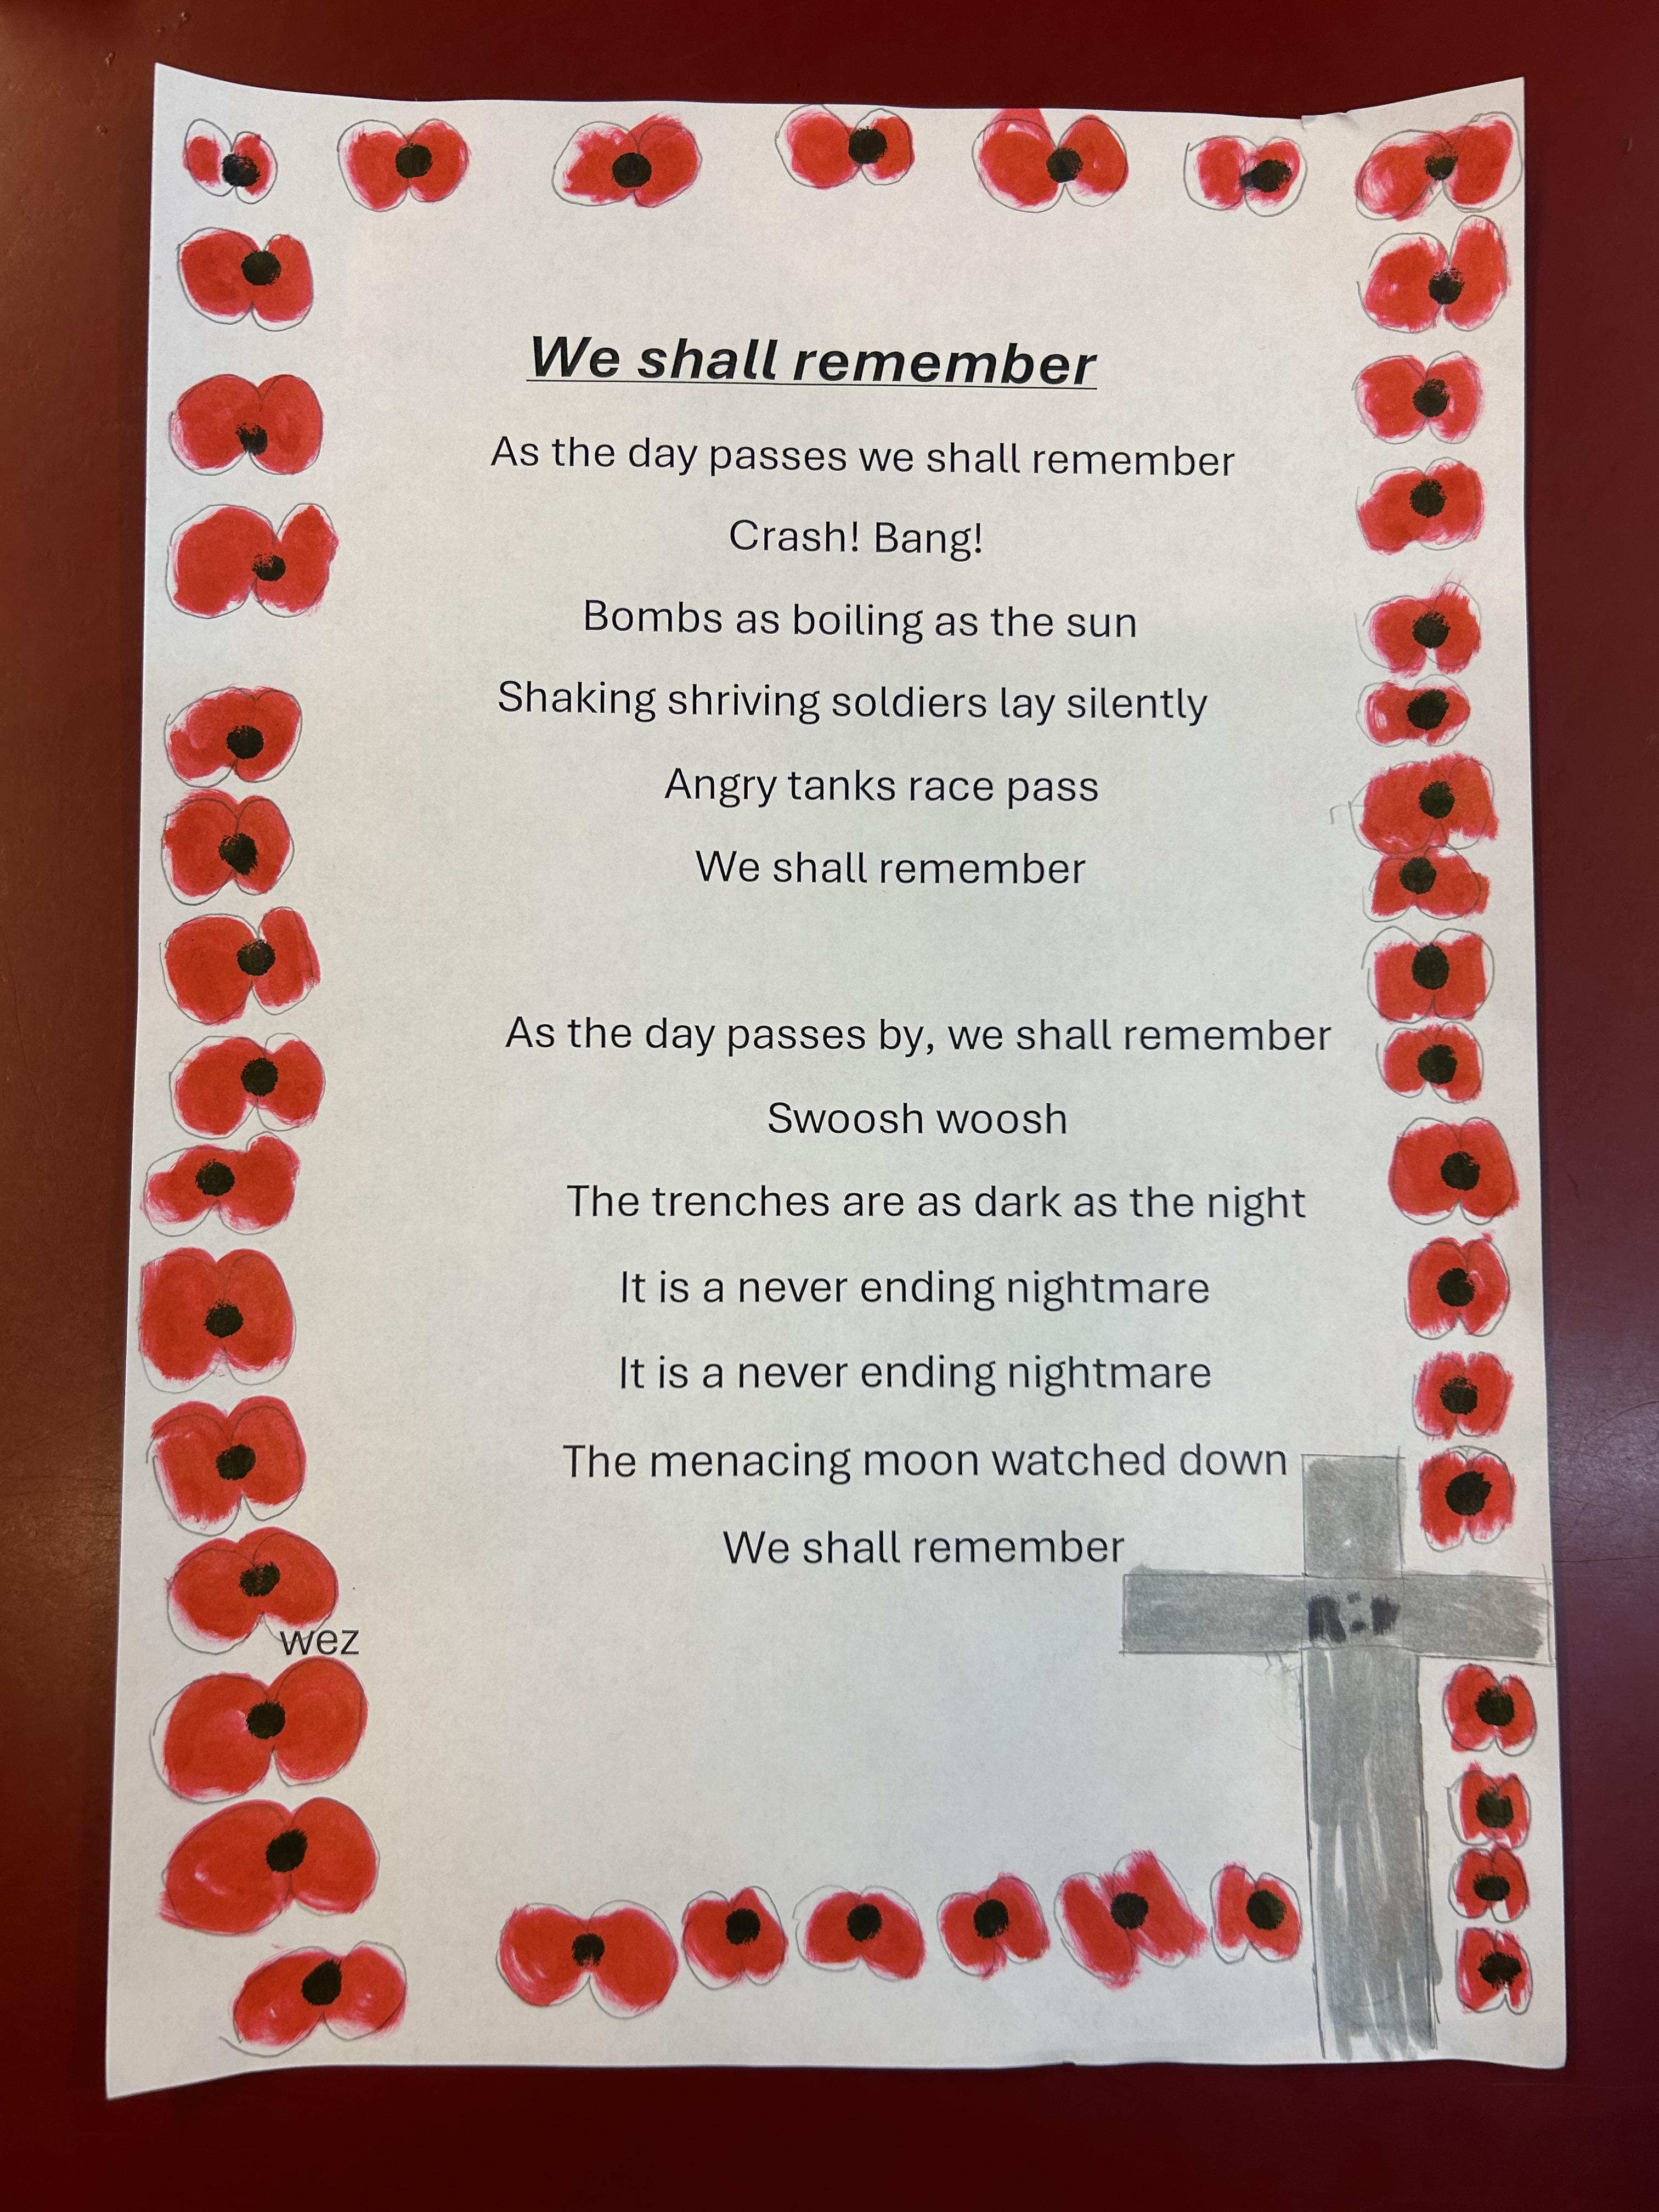 We shall remember
As the day passes we shall remember
Crash! Bang!
Bombs as boiling as the sun
Shaking shriving soldiers lay silently
Angry tanks race pass
We shall remember
As the day passes by, we shall remember
Swoosh woosh
The trenches are as dark as the night
It is a never ending nightmare
It is a never ending nightmare
The menacing moon watched down
We shall remember
wez